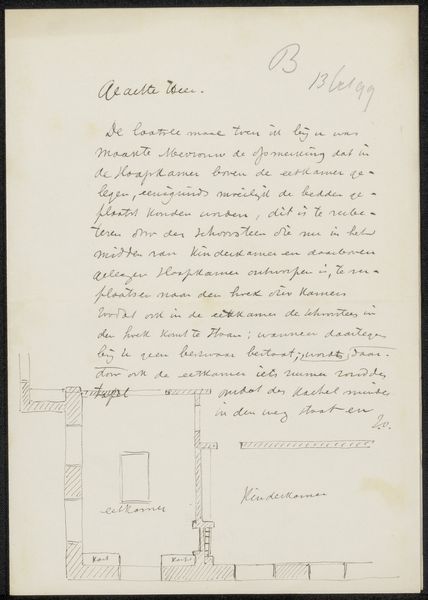 B
13/
Geachte Heer.
De laatste maal toen ik bij u was
maakte Mevrouw de opmerking dat in
de slaapkamer boven de eetkamer ge-
legen, eenigzinds moeilijk de bedden ge-
plaatst konden worden, dit is te verbe-
teren door den schoorsteen die nu in het
midden van Kinderkamer en daarboven
gelegen slaapkamer ontworpen is, te ver-
plaatsen naar den hoek dier kamers
zoodat ook in de eetkamer de schoorsteen in
den hoek komt te staan; wanneer daartegen
bij u geen bezwaar bestaat; wordt daar-
door ook de eetkamer iets ruimer
omdat de kachel minder
in den weg staat en
z.o.
eetkamer
Kinderkamer
Kast